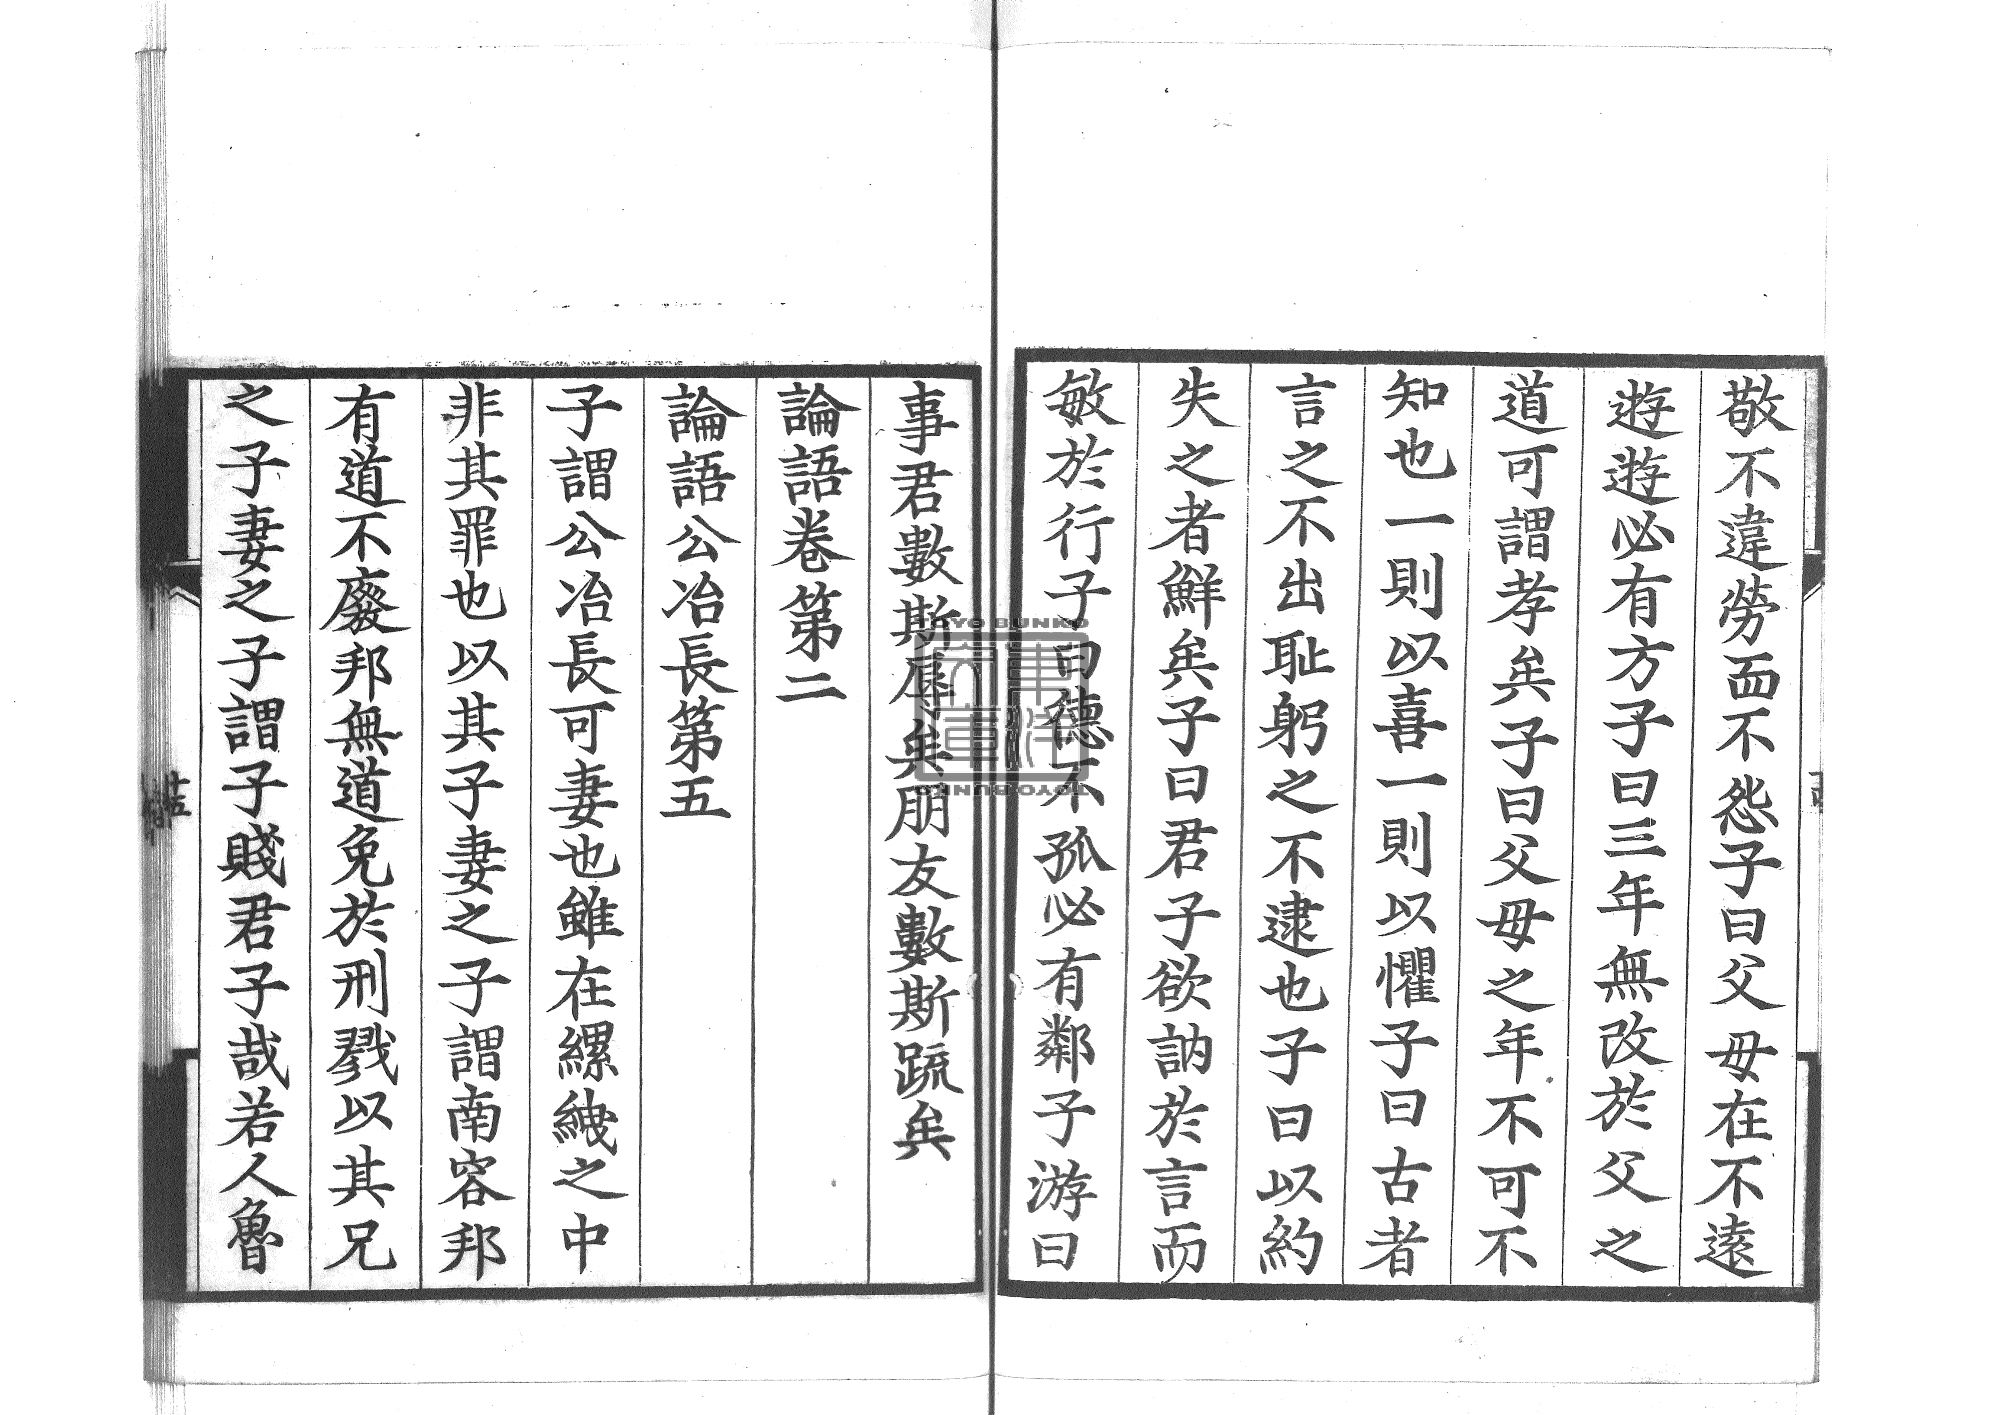 敬不違勞而不怨子曰父母在不遠
遊遊必有方子曰三年無改於父之
道可謂孝矣子曰父母之年不可不
知也一則以喜一則以懼子曰古者
言之不出恥躬之不逮也子曰以約
失之者鮮矣子曰君子欲訥於言而
敏於行子曰德不孤必有鄰子游曰
事君數斯辱矣朋友數斯疏矣
論語卷第二
論語公冶長第五
子謂公冶長可妻也雖在縲絏之中
非其罪也以其子妻之子謂南容邦
有道不廢邦無道免於刑戮以其兄
之子妻之子謂子賤君子哉若人魯
十五
TOYO BUNKO
TOYO BUNKO